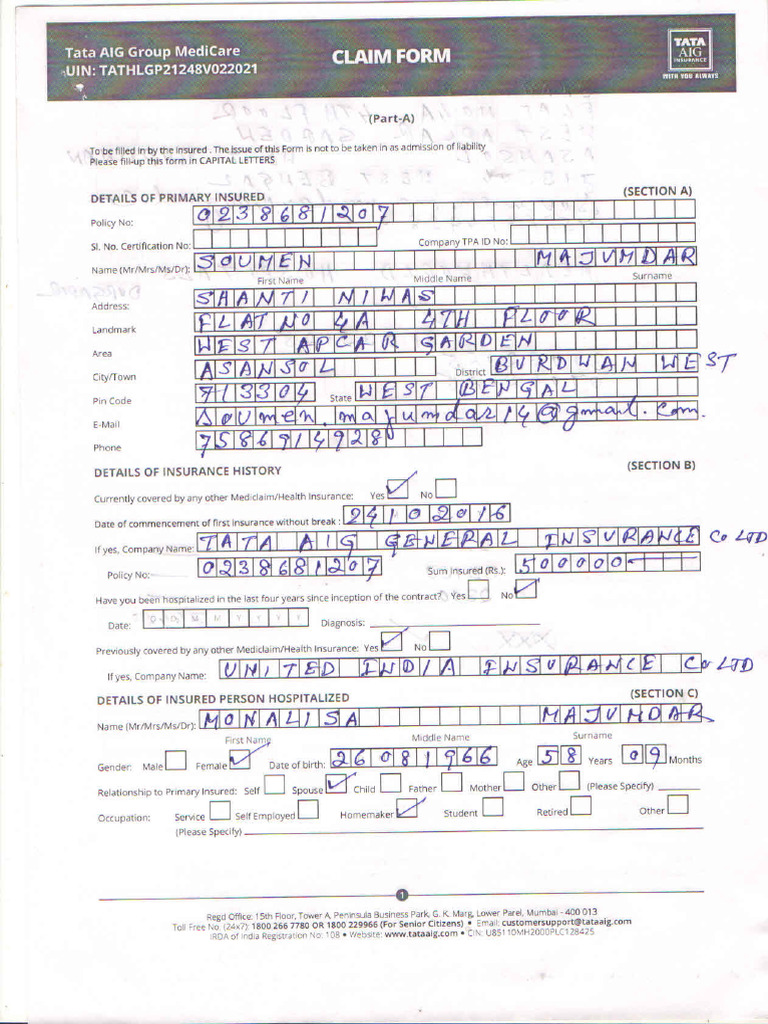 Tata AIG Group MediCare
UIN: TATHLGP21248V022021
CLAIM FORM
TATA
AIG
INSURANCE
WITH YOU ALWAYS
(Part-A)
To be filled in by the insured . The issue of this Form is not to be taken in as admission of liability
Please fill-up this form in CAPITAL LETTERS
DETAILS OF PRIMARY INSURED (SECTION A)
Policy No: 0238681207
Sl. No. Certification No: Company TPA ID No:
Name (Mr/Mrs/Ms/Dr): SOUMEN MAJUMDAR
First Name Middle Name Surname
Address: SHANTI NIWAS
Landmark FLAT NO 4A 4TH FLOOR
Area WEST APCAR GARDEN
City/Town ASANSOL District BURDWAN WEST
Pin Code 713304 State WEST BENGAL
E-Mail soumen.majumdar14@gmail.com.
Phone 7586914928
DETAILS OF INSURANCE HISTORY (SECTION B)
Currently covered by any other Mediclaim/Health Insurance: Yes ✓ No
Date of commencement of first insurance without break : 24102016
If yes, Company Name: TATA AIG GENERAL INSURANCE Co LTD
Policy No: 0238681207 Sum Insured (Rs.): 500000
Have you been hospitalized in the last four years since inception of the contract? Yes No ✓
Date: Diagnosis:
Previously covered by any other Mediclaim/Health Insurance: Yes ✓ No
If yes, Company Name: UNITED INDIA INSURANCE Co LTD
DETAILS OF INSURED PERSON HOSPITALIZED (SECTION C)
Name (Mr/Mrs/Ms/Dr): MONALISA MAJUMDAR
First Name Middle Name Surname
Gender: Male Female ✓ Date of birth: 26081966 Age 58 Years 09 Months
Relationship to Primary Insured: Self Spouse ✓ Child Father Mother Other (Please Specify)
Occupation: Service Self Employed Homemaker ✓ Student Retired Other
(Please Specify)
1
Regd Office: 15th Floor, Tower A, Peninsula Business Park, G. K. Marg, Lower Parel, Mumbai - 400 013
Toll Free No. (24x7): 1800 266 7780 OR 1800 229966 (For Senior Citizens) • Email: customersupport@tataaig.com
IRDA of India Registration No: 108 • Website: www.tataaig.com • CIN: U85110MH2000PLC128425